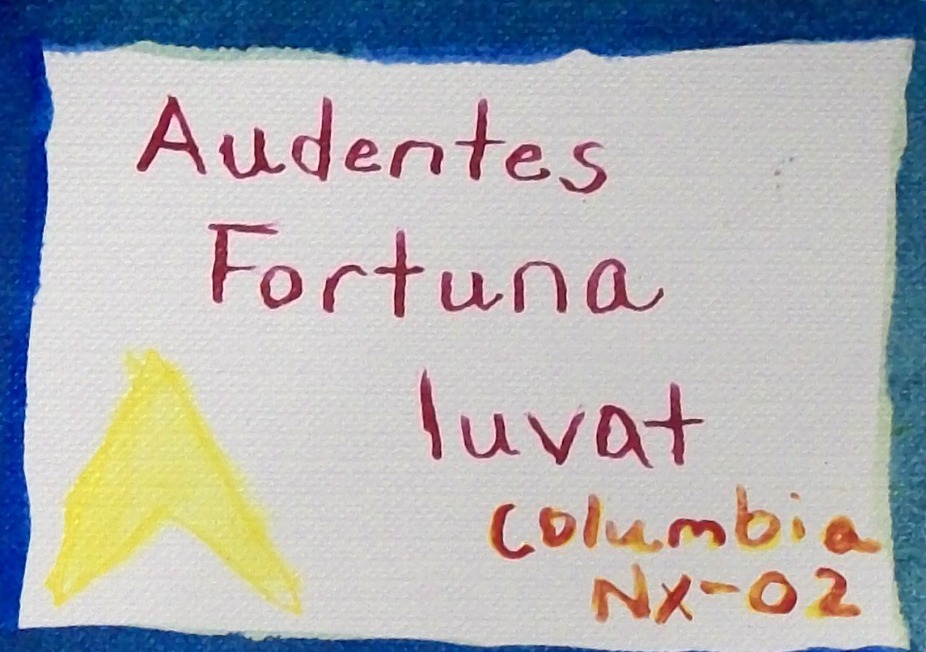 Audentes
Fortuna
Iuvat
Columbia
NX-02